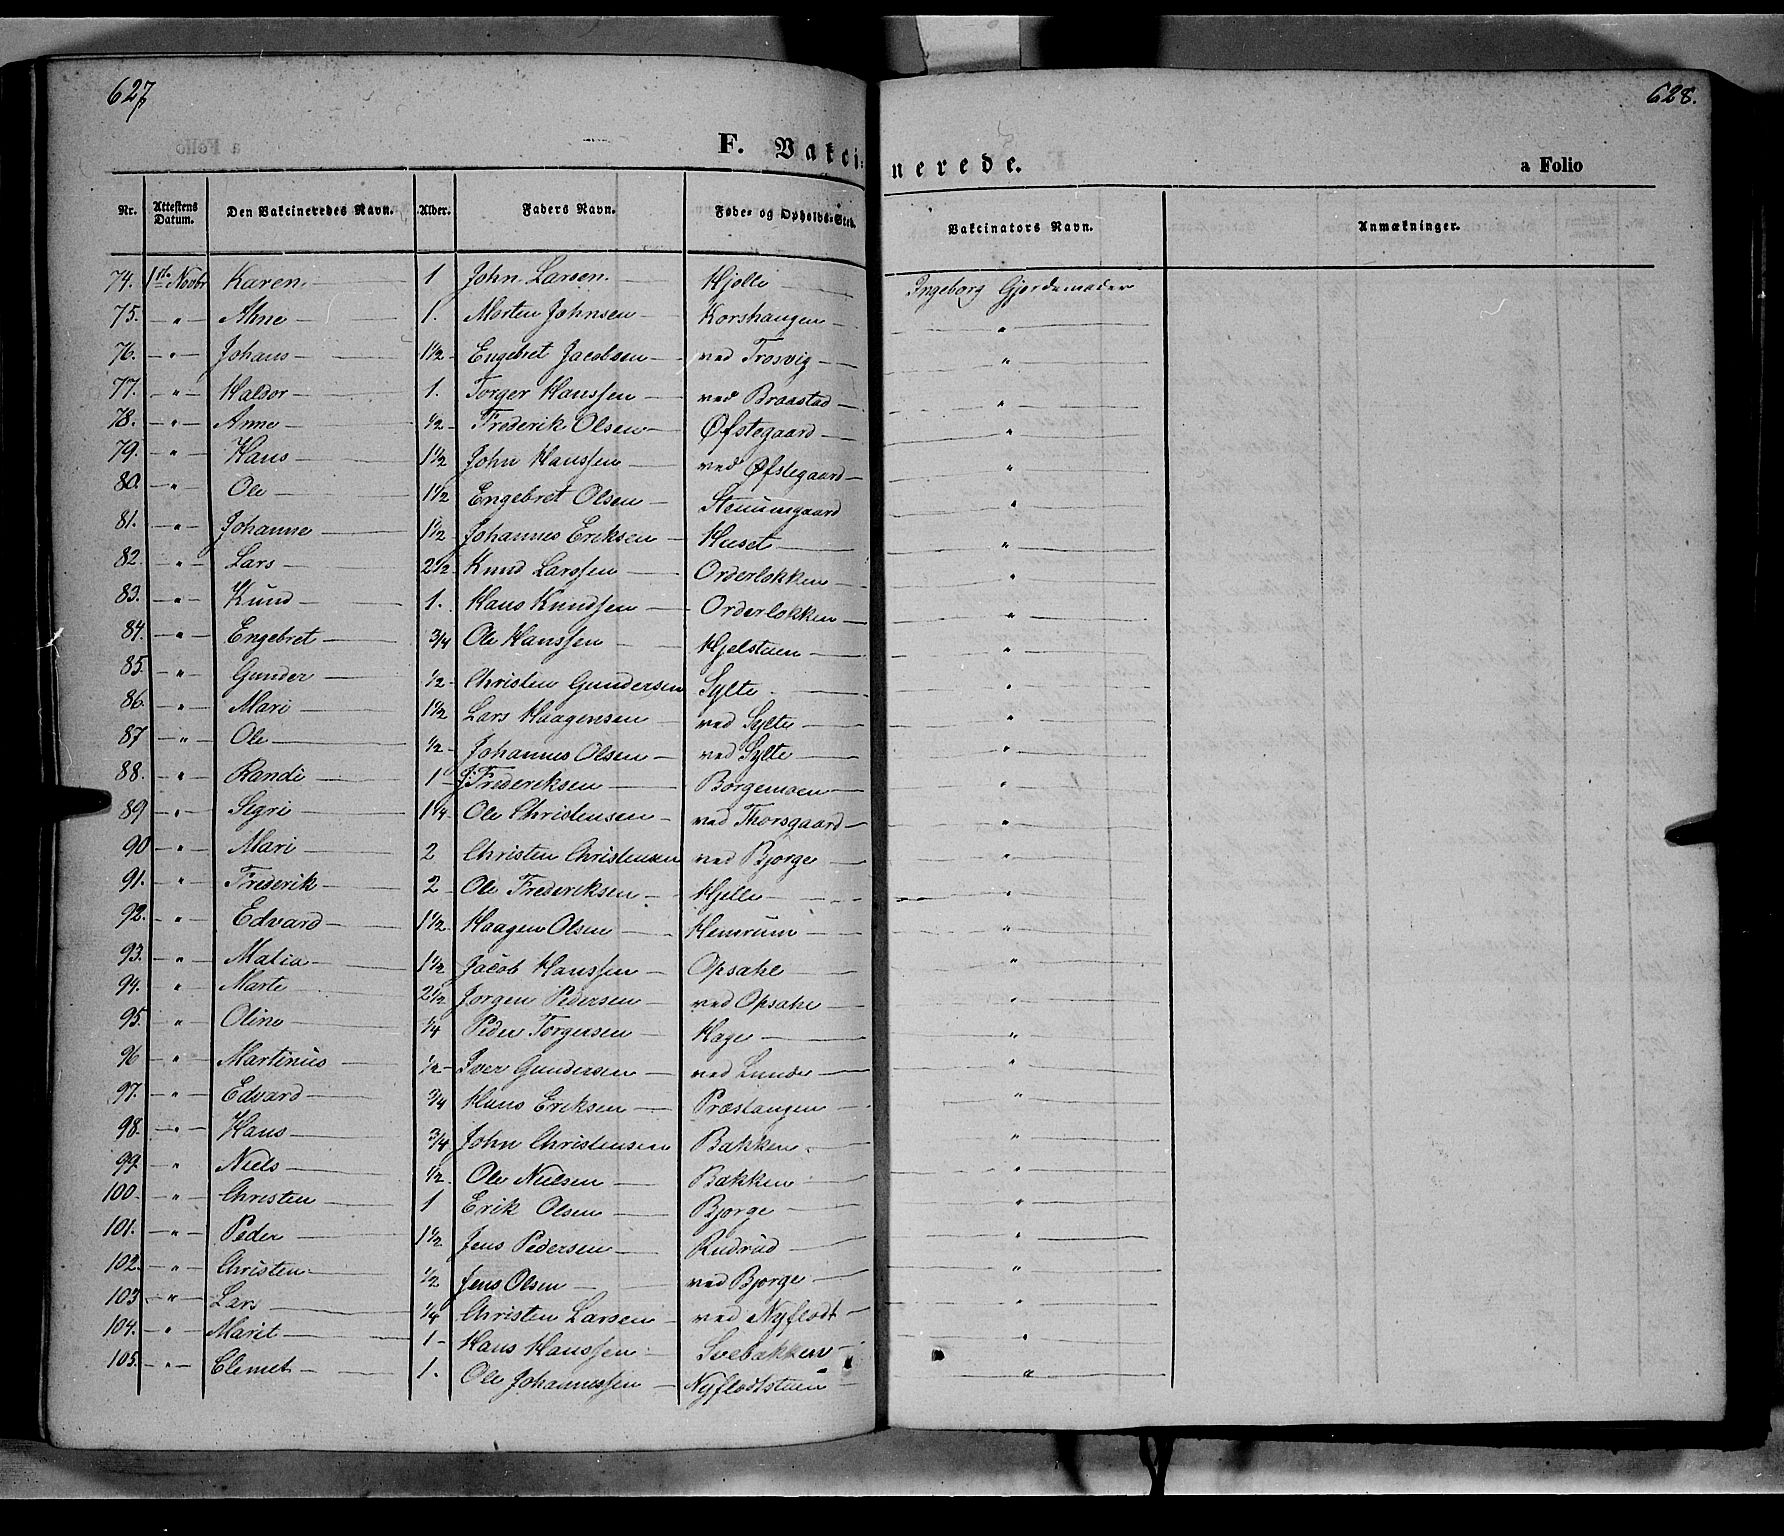 627
628.
F. Vakcinerede.
a Folio
Nr. Attestens Datum. Den Vakcineredes Navn. Alder. Faders Navn. Føde- og Opholds-Sted. Vakcinators Navn. Anmærkninger.
74. 1ste Novbr Karen 1 John Larsen Kjølle Ingeborg Gjordemoder
75. " Ahne 1. Morten Johnsen Korshaugen "
76. " Johans 1½ Engebret Jacobsen ved Trosvig "
77. " Haldor 1. Torger Hanssen ved Braastad "
78. " Anne ½ Frederik Olsen Øfstegaard "
79. " Hans 1½ John Hanssen ved Øfstegaard "
80. " Ole 1½ Engebret Olsen "
81. " Johanne 1½ Johannes Eriksen Huset "
82. " Lars 2½ Knud Larssen Orderløkken "
83. " Knud 1. Hans Knudsen Orderløkken "
84. " Engebret ¾ Ole Hanssen Hjelstuen "
85. " Gunder ½ Christen Gundersen Sylte "
86. " Mari 1½ Lars Haagensen ved Sylte "
87 " Ole ½ Johannes Olsen ved Sylte "
88. " Randi 1 J. Frederiksen Borgemoen "
89 " Segri 1¼ Ole Christensen ved Thorsgaard "
90 " Mari 2 Christen Christensen ved Bjørge "
91. " Frederik 2 Ole Frederiksen Hjelle "
92. " Edvard 1½ Haagen Olsen "
93. " Matia 1½ Jacob Hanssen Opsahl "
94. " Marte 2½ Jørgen Pedersen ved Opsahl "
95. " Oline ¼ Peder Torgersen Hage "
96 " Martinus ½ Iver Gundersen ved Lunde "
97. " Edvard ¾ Hans Eriksen Præstangen "
98. " Hans ¾ John Christensen Bakken "
99. " Niels ½ Ole Nielsen Bakken "
100. " Christen 1 Erik Olsen Bjørge "
101. " Peder 1½ Jens Pedersen Rudrud "
102. " Christen ½ Jens Olsen ved Bjørge "
103 " Lars ¼ Christen Larsen ved Nyflodt "
104. " Marit 1 Hans Hanssen Svebakken "
105. " Clemet 1. Ole Johannessen Nyflodtstuen "